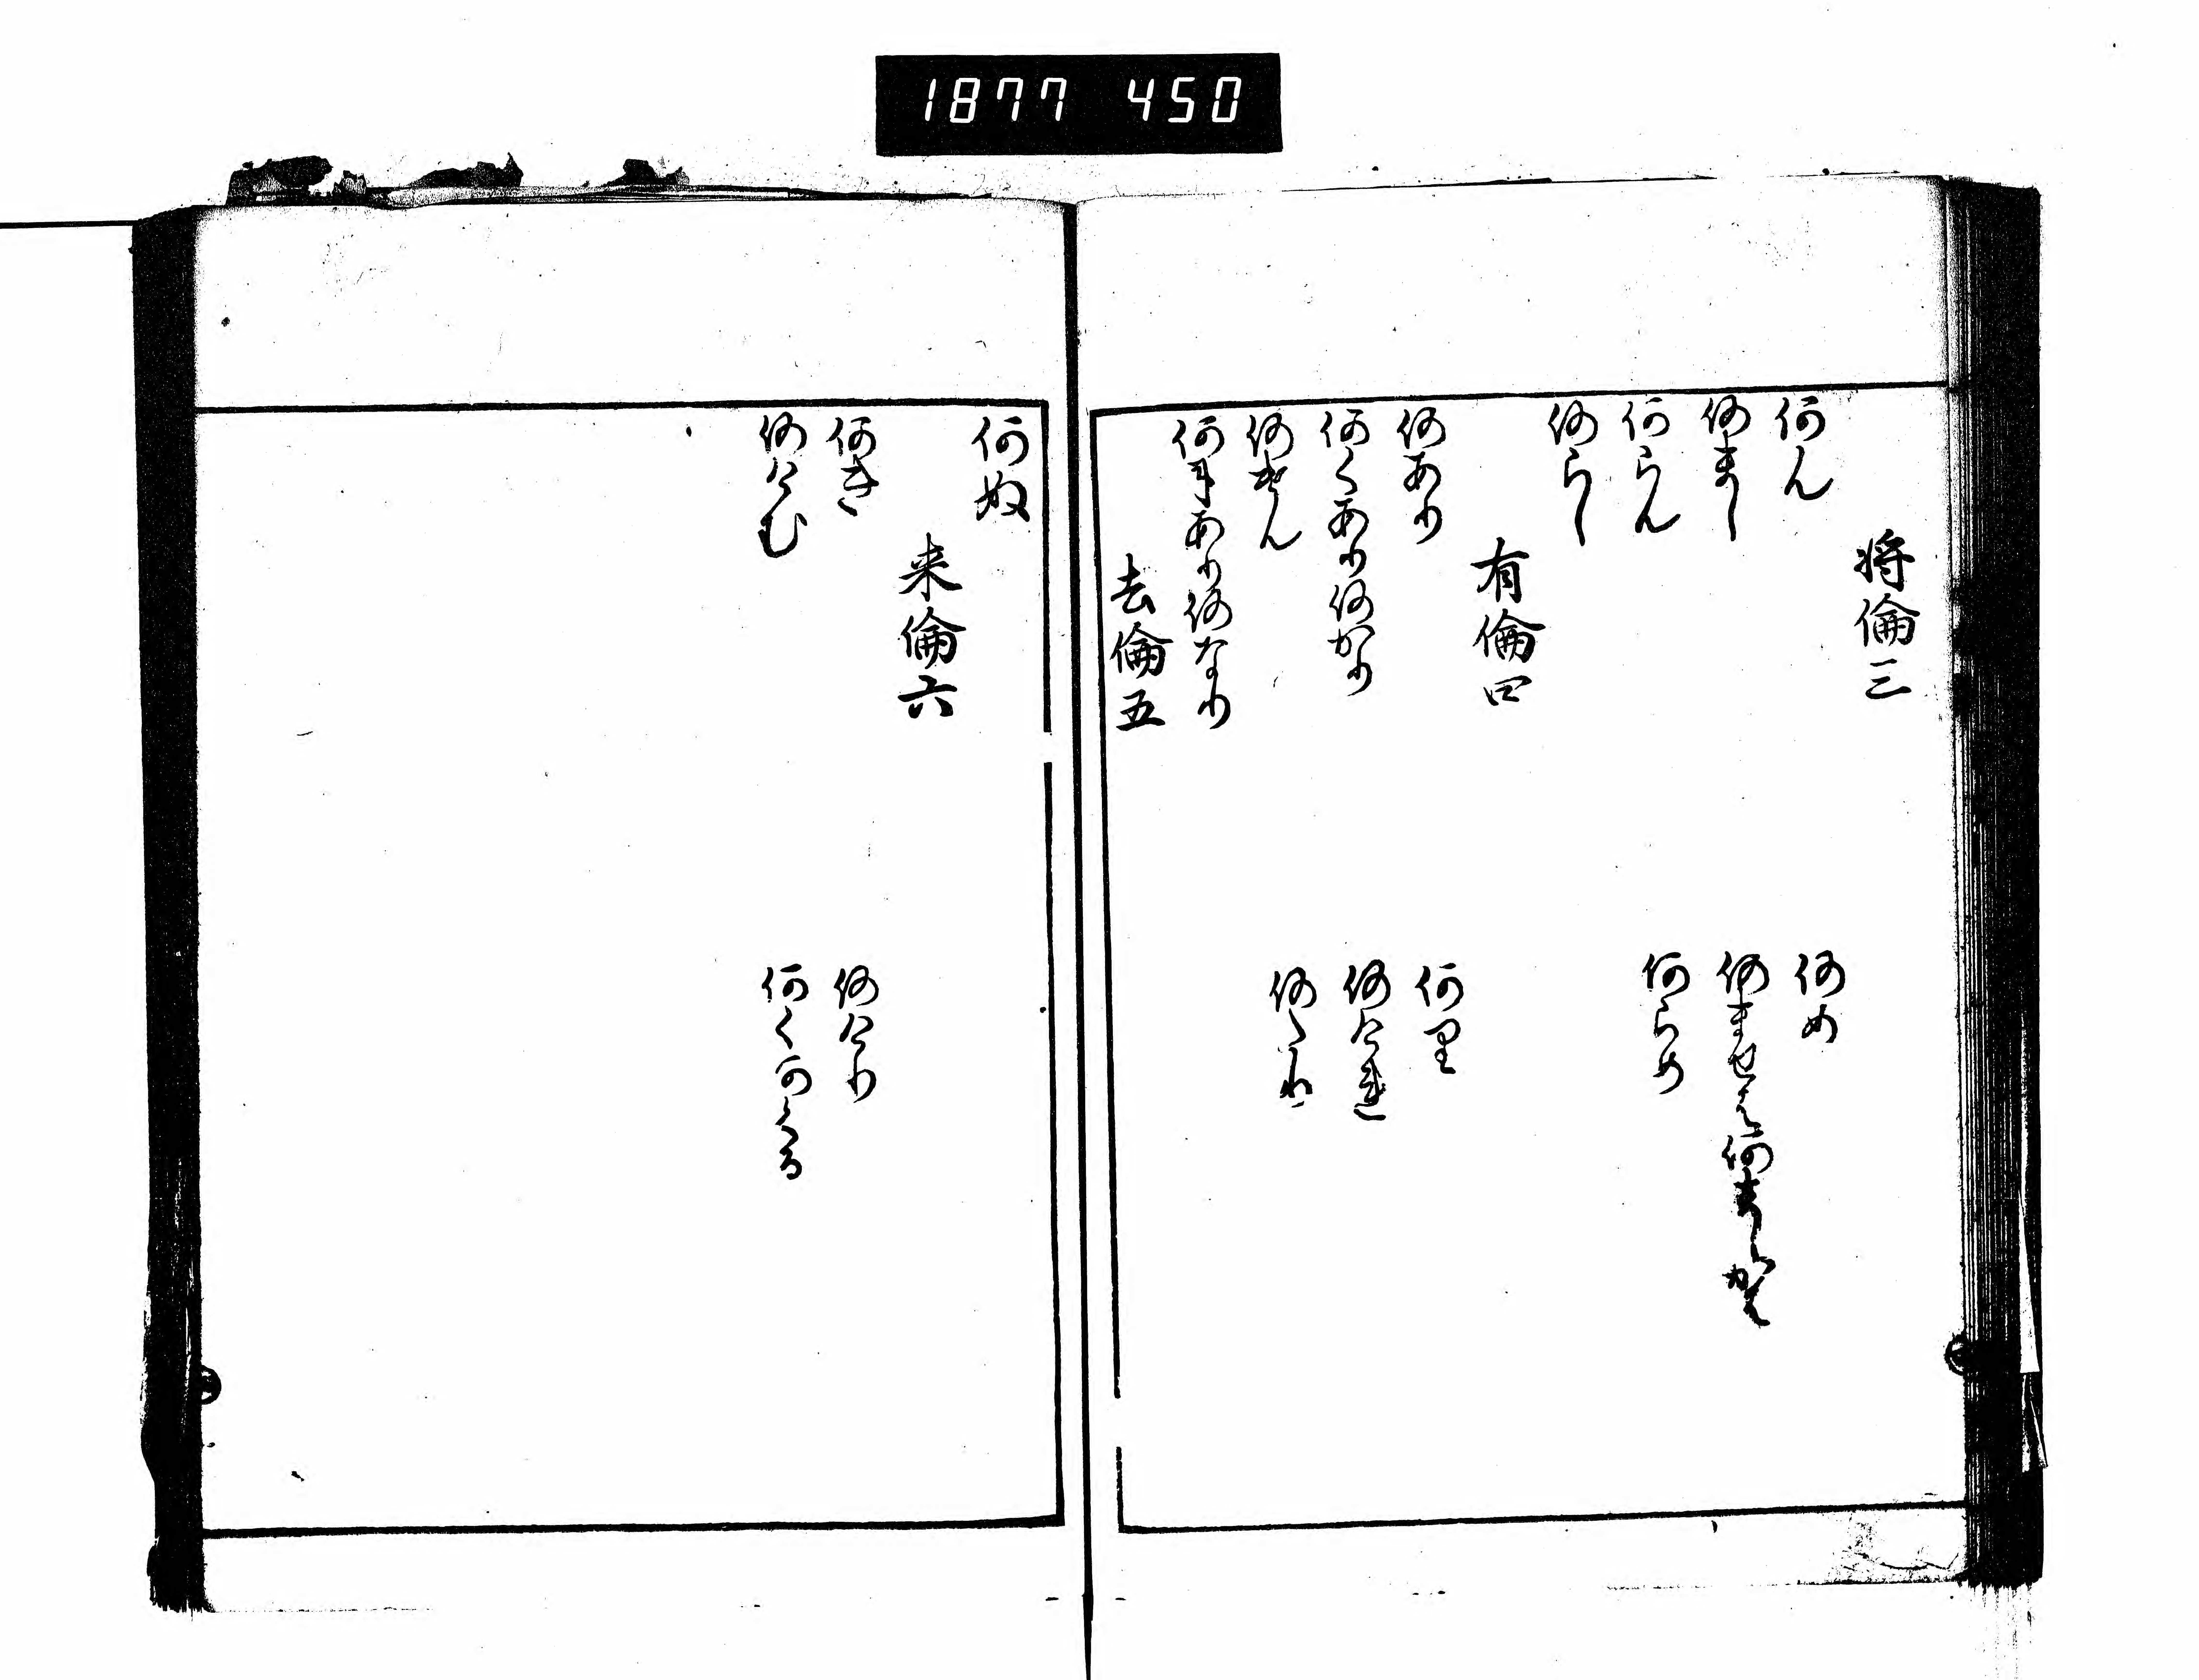 1877 450
将倫三
何ん
何め
何まし
何ませは何ましかは
何らん
何らめ
何らし
有倫四
何あり
何里
何くあり何かり
何けれ
何
何
何
何にあり何なり
去倫五
何ぬ
来倫六
何き
何けり
何けむ
何く何くる